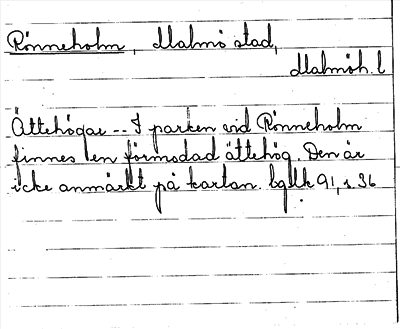 Rönneholm, Malmö stad,
Malmöh. l
Ättehögar -- I parken vid Rönneholm
finnes en förmodad ättehög. Den är
icke anmärkt på kartan. bglk 91, s 36